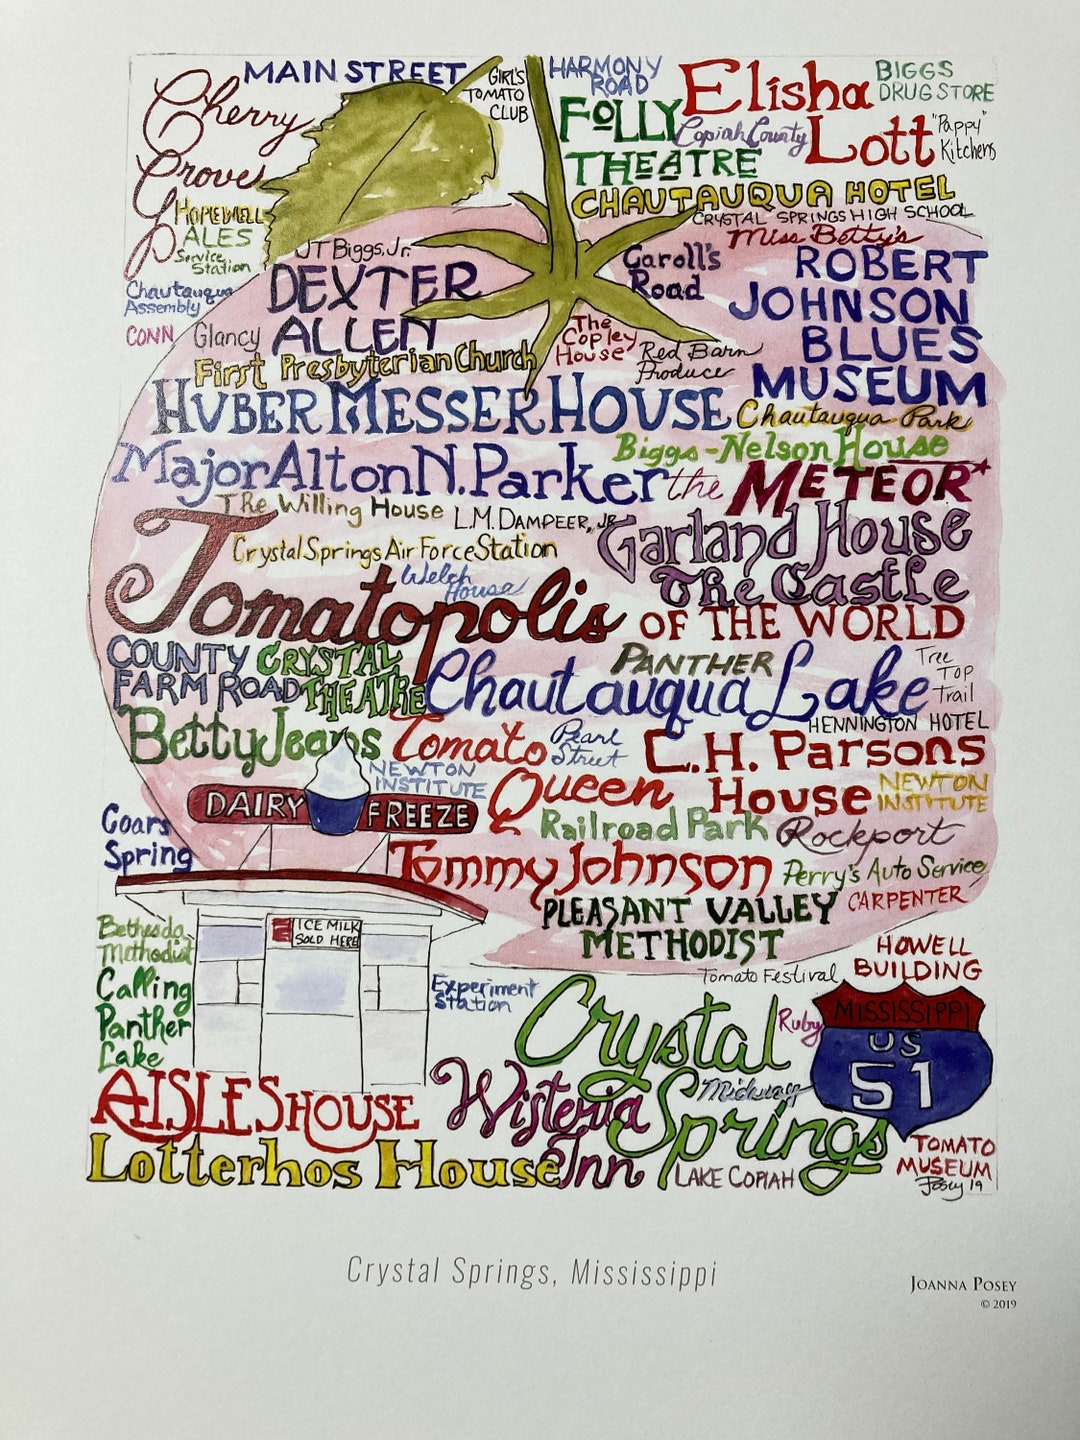 MAIN STREET
GIRL'S
TOMATO
CLUB
HARMONY
ROAD
Elisha
Lott
BIGGS
DRUG STORE
Cherry
Grove
FOLLY
THEATRE
Copiah County
"Pappy"
Kitchens
CHAUTAUQUA HOTEL
CRYSTAL SPRINGS HIGH SCHOOL
HOPEWELL
ALES
Service
Station
Miss Betty's
JT Biggs, Jr.
DEXTER
ALLEN
Caroll's
Road
ROBERT
JOHNSON
BLUES
MUSEUM
Chautauqua
Assembly
CONN
Glancy
The
Copley
House
Red Barn
Produce
First Presbyterian Church
HUBER MESSER HOUSE
Chautauqua Park
Biggs-Nelson House
Major Alton N. Parker
the METEOR*
The Willing House
L.M. DAMPEER, JR
Garland House
Crystal Springs Air Force Station
Welch
House
The Castle
Tomatopolis
OF THE WORLD
COUNTY
FARM ROAD
CRYSTAL
THEATRE
PANTHER
Chautauqua Lake
Tree
Top
Trail
HENNINGTON HOTEL
Betty Jeans
Tomato
Queen
Pearl
Street
C.H. Parsons
House
NEWTON
INSTITUTE
NEWTON
INSTITUTE
DAIRY FREEZE
Railroad Park
Rockport
Coars
Spring
Tommy Johnson
Perry's Auto Service
PLEASANT VALLEY
METHODIST
CARPENTER
ICE MILK
SOLD HERE
Bethesda
Methodist
HOWELL
BUILDING
Tomato Festival
Calling
Panther
Lake
Experiment
Station
Crystal
Springs
Ruby
MISSISSIPPI
US
51
Midway
AISLES HOUSE
Wisteria
Inn
Lotterhos House
LAKE COPIAH
TOMATO
MUSEUM
Posey 19
Crystal Springs, Mississippi
JOANNA POSEY
© 2019